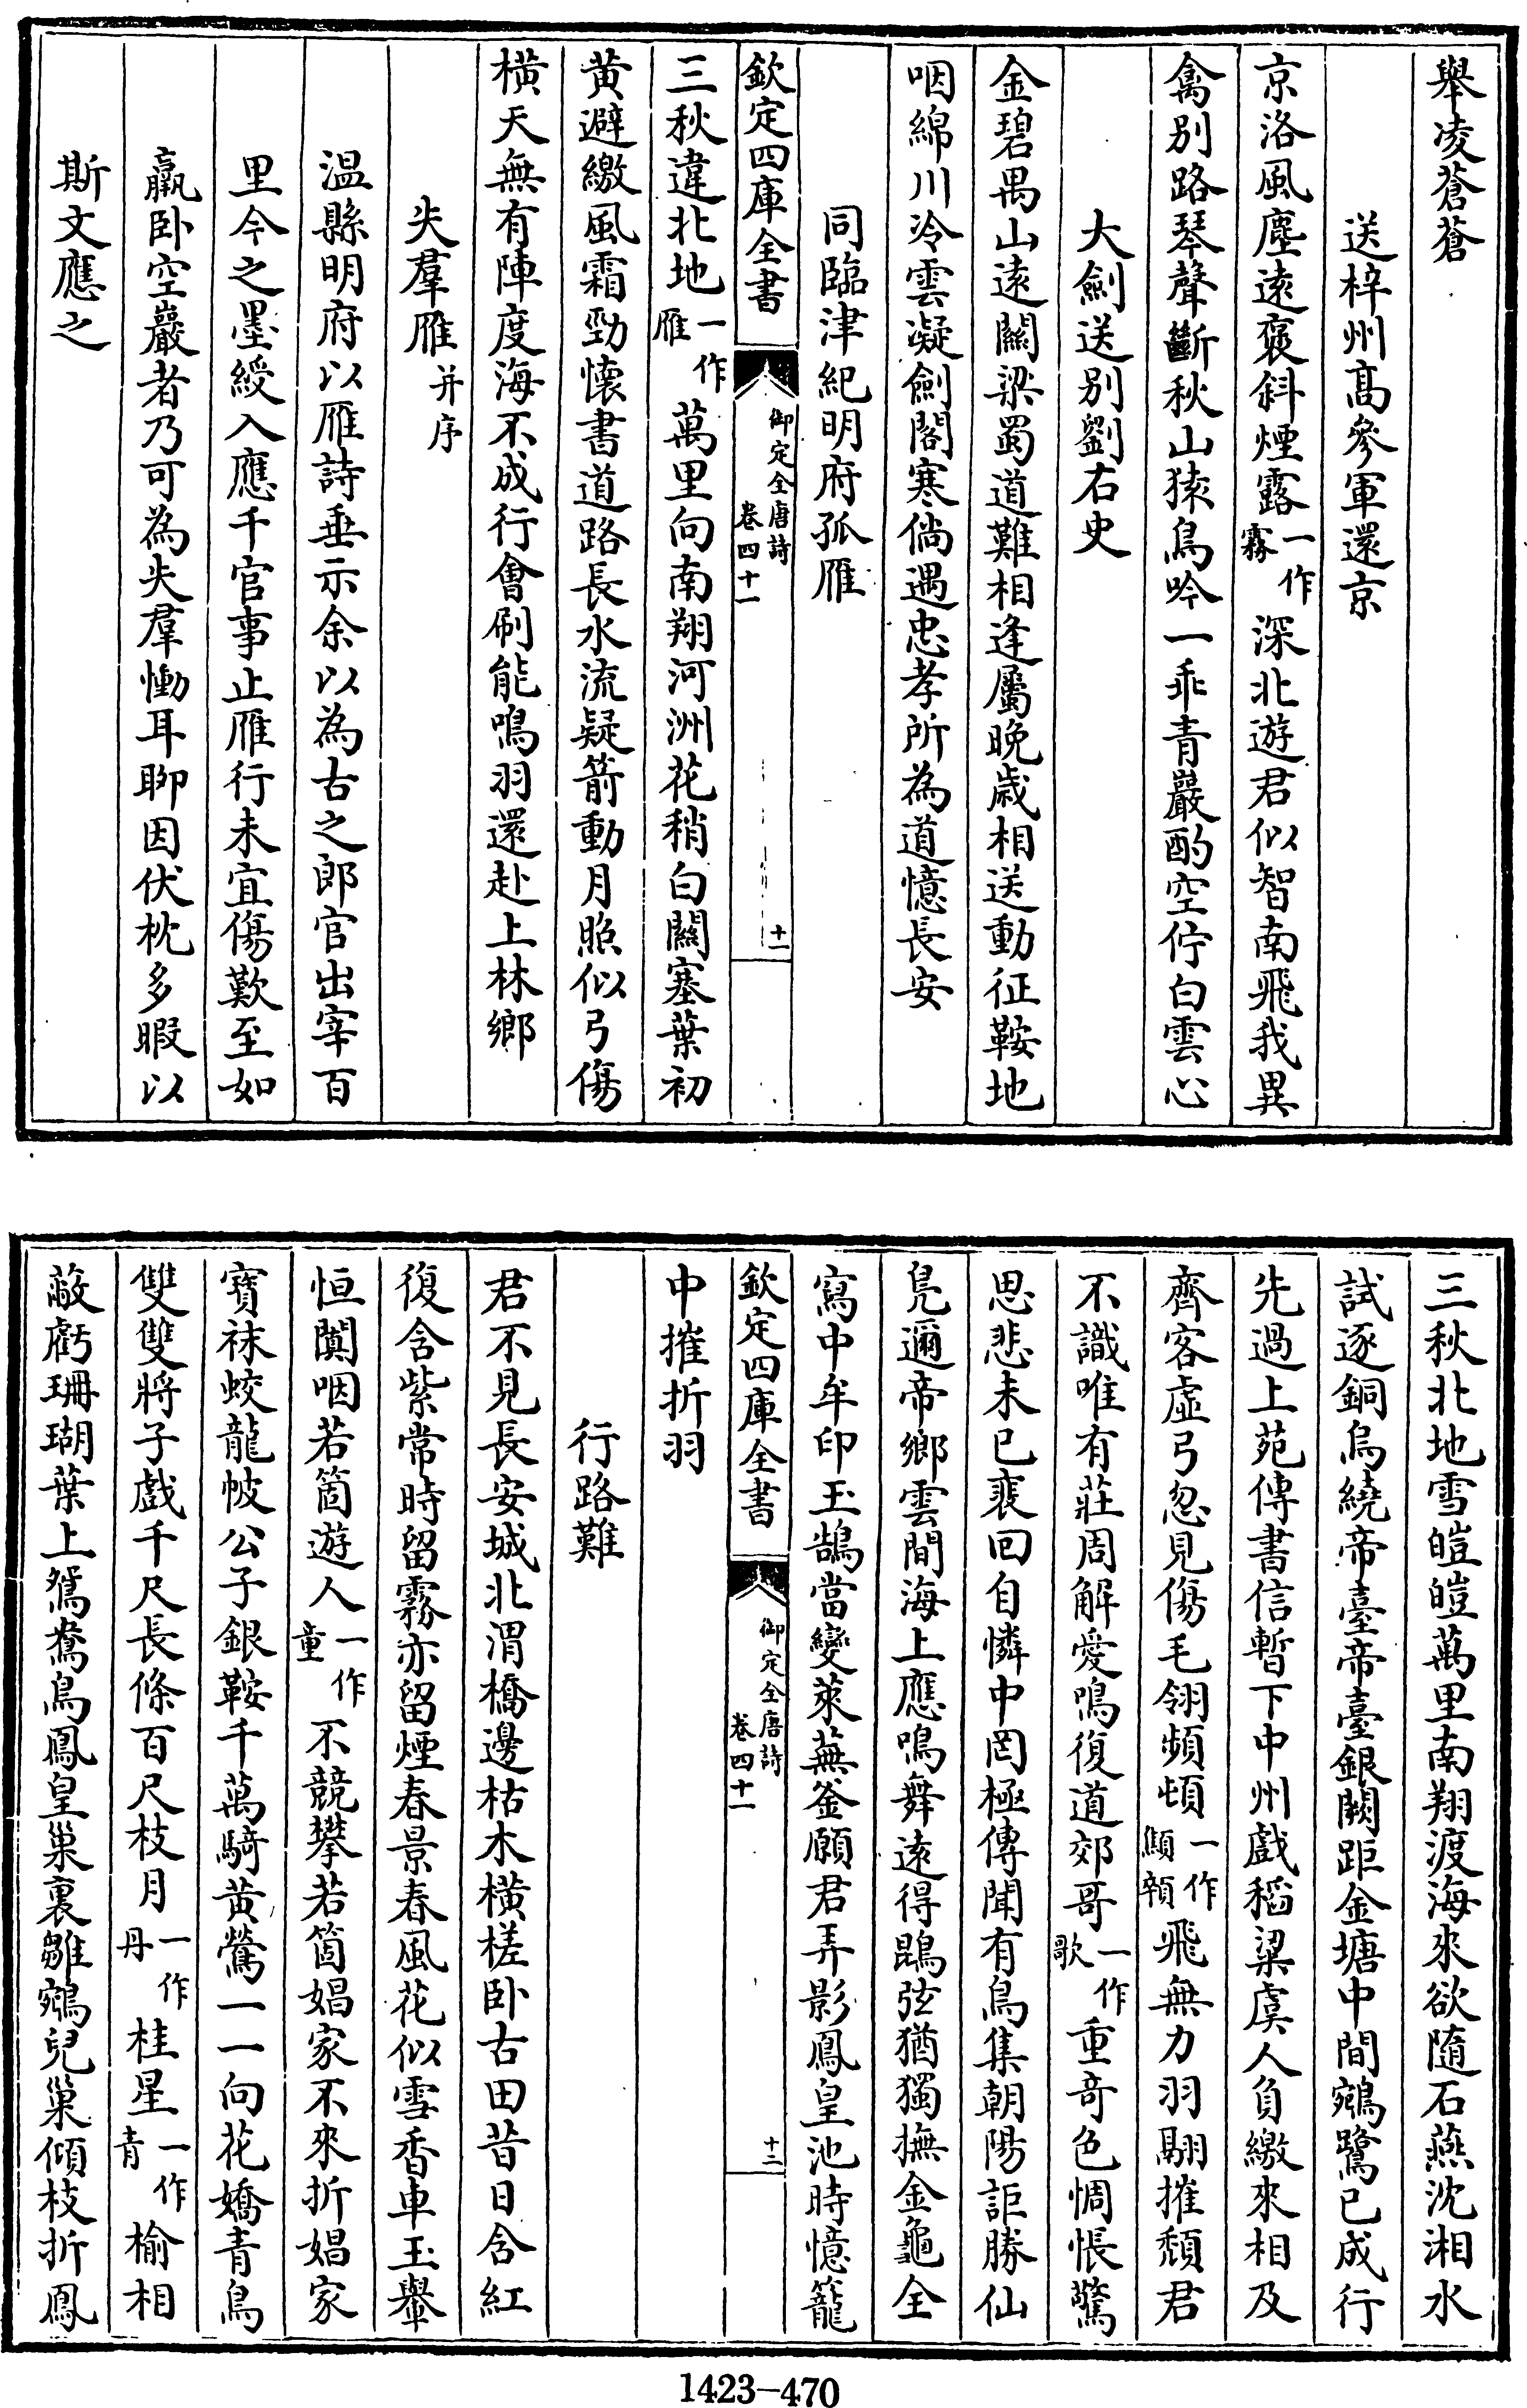 舉凌蒼蒼
送梓州髙參軍還京
京洛風塵逺褒斜煙露一作霧深北遊君似智南飛我異
禽别路琴聲斷秋山猿鳥吟一乖青巖酌空佇白雲心
大劍送别劉右史
金碧禺山逺關梁蜀道難相逢屬晚歳相送動征鞍地
咽綿川冷雲凝劍閣寒倘遇忠孝所為道憶長安
同臨津紀明府孤雁
欽定四庫全書
御定全唐詩
卷四十一
十一
三秋違北地一作雁萬里向南翔河洲花稍白關塞葉初
黄避繳風霜勁懐書道路長水流疑箭動月照似弓傷
横天無有陣度海不成行㑹刷能鳴羽還赴上林鄉
失羣雁并序
温縣明府以雁詩垂示余以為古之郎官出宰百
里今之墨綬入應千官事止雁行未宜傷歎至如
羸卧空巖者乃可為失羣慟耳聊因伏枕多暇以
斯文應之
三秋北地雪皚皚萬里南翔渡海來欲隨石燕沈湘水
試逐銅烏繞帝臺帝臺銀闕距金塘中間鵷鷺已成行
先過上苑傳書信暫下中州戲稻粱虞人負繳來相及
齊客虚弓忽見傷毛翎頻頓一作顦顇飛無力羽翮摧頽君
不識唯有莊周解愛鳴復道郊哥一作歌重奇色惆悵驚
思悲未已裵回自憐中罔極傳聞有鳥集朝陽詎勝仙
凫邇帝鄉雲間海上應鳴舞逺得鵾弦猶獨撫金龜全
寫中牟印玉鵠當變萊蕪釜願君弄影鳳皇池時憶籠
欽定四庫全書
御定全唐詩
卷四十一
十二
中摧折羽
行路難
君不見長安城北渭橋邊枯木横槎卧古田昔日含紅
復含紫常時留霧亦留煙春景春風花似雪香車玉轝
恒闐咽若箇遊人一作童不競攀若箇娼家不來折娼家
寶袜蛟龍帔公子銀鞍千萬騎黄鶯一一向花嬌青鳥
雙雙將子戲千尺長條百尺枝月一作丹桂星一作青榆相
蔽虧珊瑚葉上鴛鴦鳥鳳皇巢裏雛鵷兒巢傾枝折鳳
1423-470